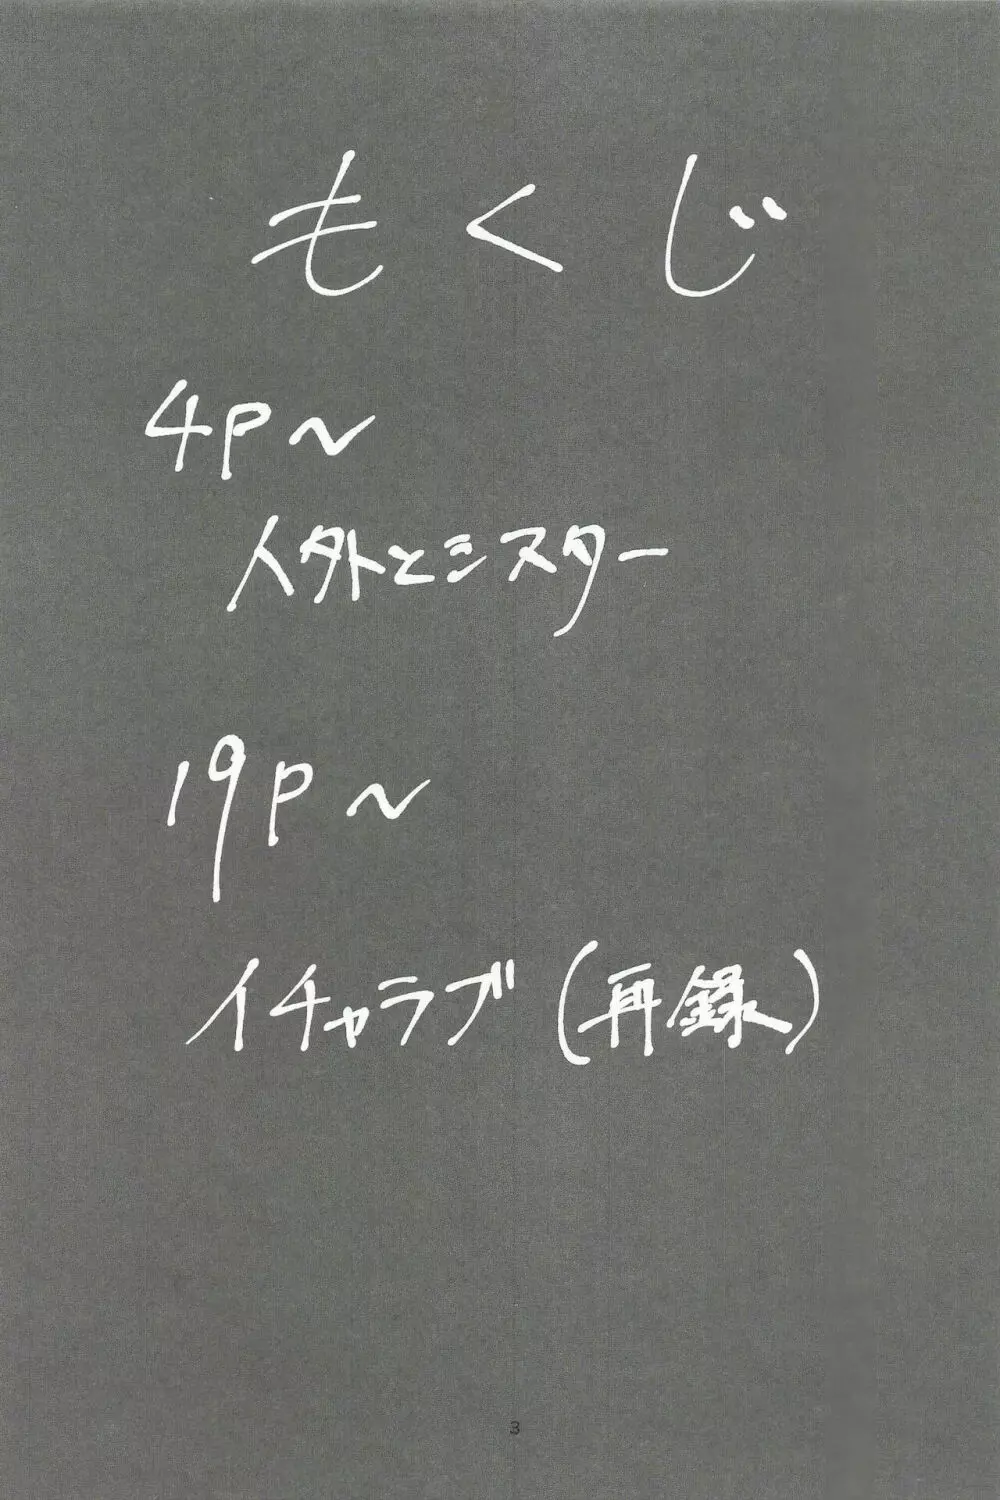 もくじ
4P～
人外とシスター
19P～
イチャラブ(再録)
3